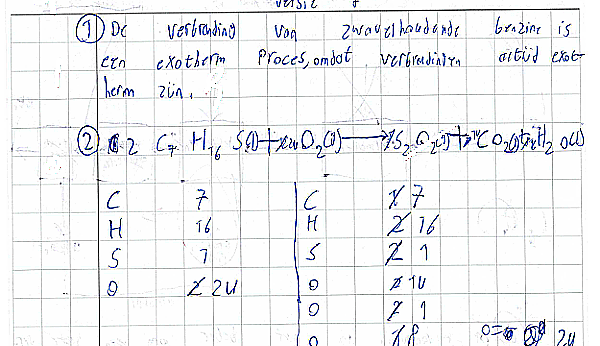 versie
① De verbranding van zwavelhoudende benzine is
een exotherm Proces, omdat verbrandingen altijd exot-
herm zijn.
② 2 C7 H16 S(l) + O2(g) → S2 O2(g) + CO2(g) + H2 O(l)
C 7 C 7
H 16 H 16
S 1 S 1
O 24 O 14
O 1
O 8 24